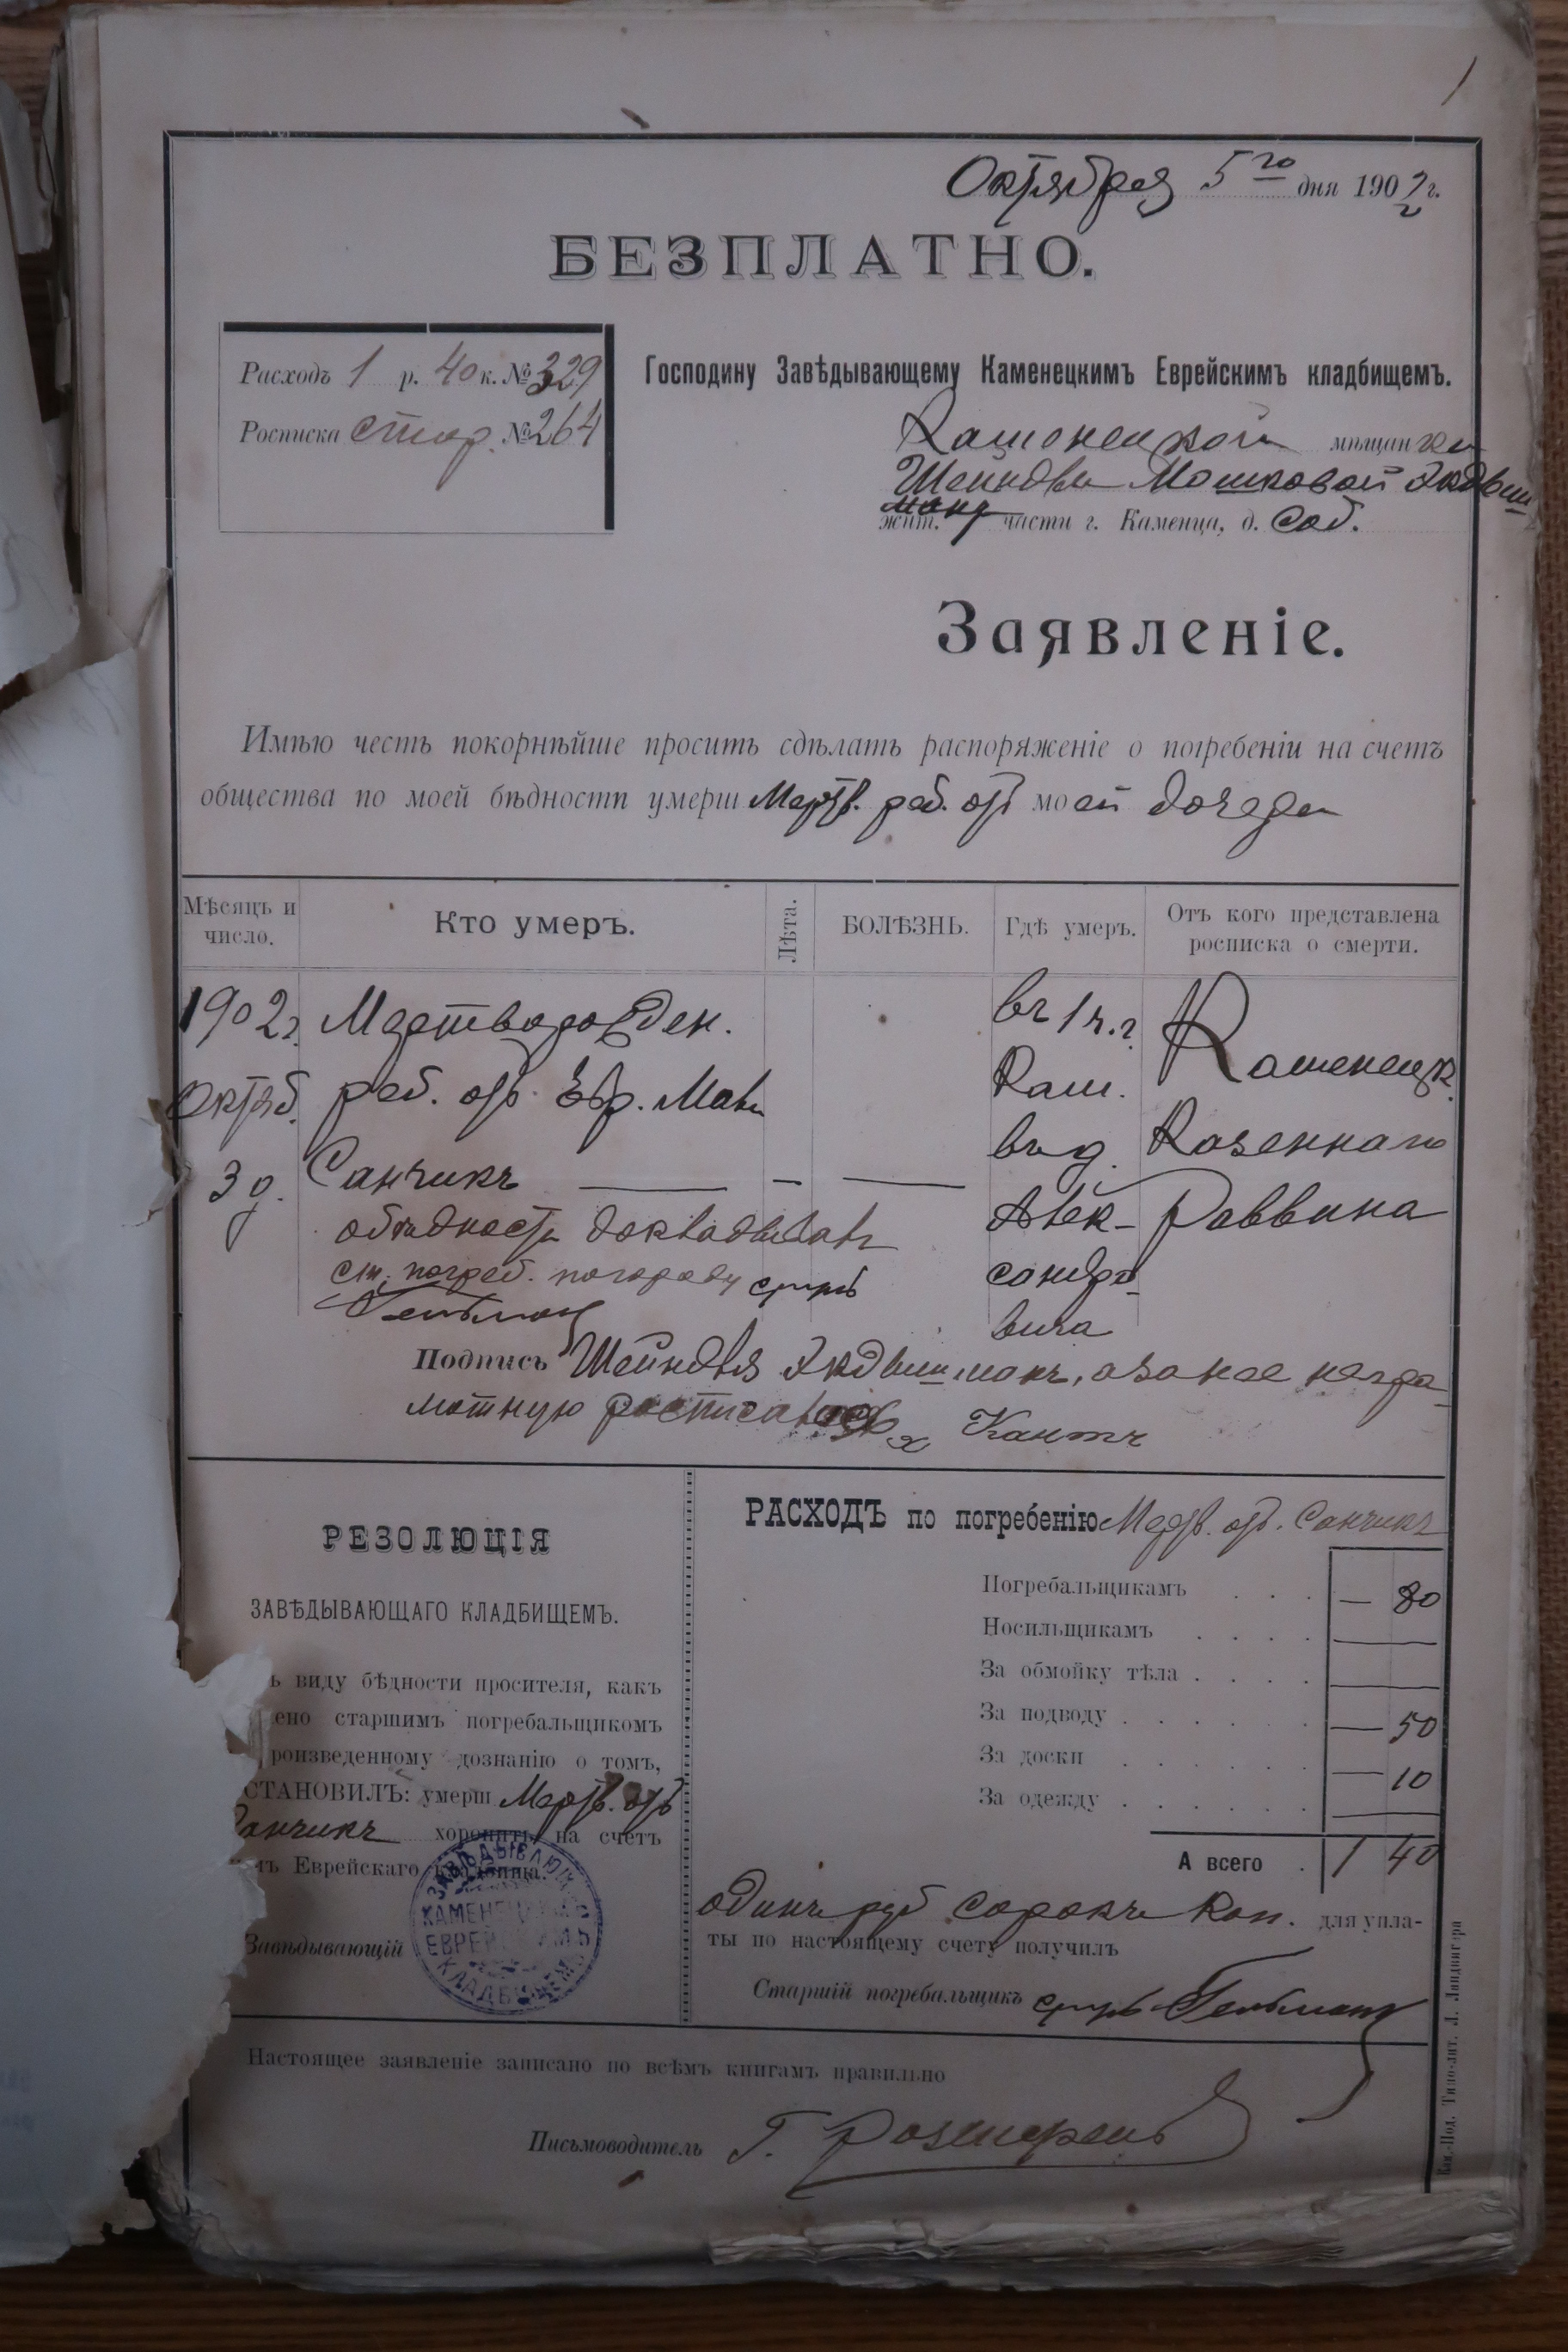 1
Октября 5го дня 1902 г.
БЕЗПЛАТНО.
Расходъ 1 р. 40 к. № 329
Росписка стар. № 264
Господину Завѣдывающему Каменецкимъ Еврейскимъ кладбищемъ.
Каменецкой мѣщанки
Шейндли Мошковой
жит. части г. Каменца, д. Соб.
Заявленіе.
Имѣю честь покорнѣйше просить сдѣлать распоряженіе о погребеніи на счетъ
общества по моей бѣдности умерш Мертв. реб. отъ моей дочери
Мѣсяцъ и число.
Кто умеръ.
Лѣта.
БОЛѢЗНЬ.
Гдѣ умеръ.
Отъ кого представлена росписка о смерти.
1902 г. Мертворожден. въ 1 ч. г. Каменецк.
Октяб. реб. отъ Евр. Мани Кам. Казеннаго
3 д. Санчикъ — — — въ д. Раввина
Алек-
сандро-
вича
о бѣдности докладывалъ
ст. погреб.
Гельманъ
Подпись Шейндля а за нее негра-
мотную росписался Кантъ
РЕЗОЛЮЦІЯ
ЗАВѢДЫВАЮЩАГО КЛАДБИЩЕМЪ.
ъ виду бѣдности просителя, какъ
ено старшимъ погребальщикомъ
роизведенному дознанію о томъ,
СТАНОВИЛЪ: умерш Мертв. отъ
Санчикъ хоронить на счетъ
мъ Еврейскаго
Завѣдывающій
ЗАВѢДЫВАЮЩІЙ КАМЕНЕЦКИМЪ ЕВРЕЙСКИМЪ КЛАДБИЩЕМЪ
РАСХОДЪ по погребенію Мертв. отъ. Санчикъ
Погребальщикамъ . . . — 80
Носильщикамъ . . . . —
За обмойку тѣла . . . . —
За подводу . . . . . . — 50
За доски . . . . . . — 10
За одежду . . . . . . —
А всего . 1 40
одинъ руб сорокъ коп. для упла-
ты по настоящему счету получилъ
Старшій погребальщикъ Гельманъ
Настоящее заявленіе записано по всѣмъ книгамъ правильно
Письмоводитель Г.
Кам.-Под. Типо-лит. Л. Ландвигера